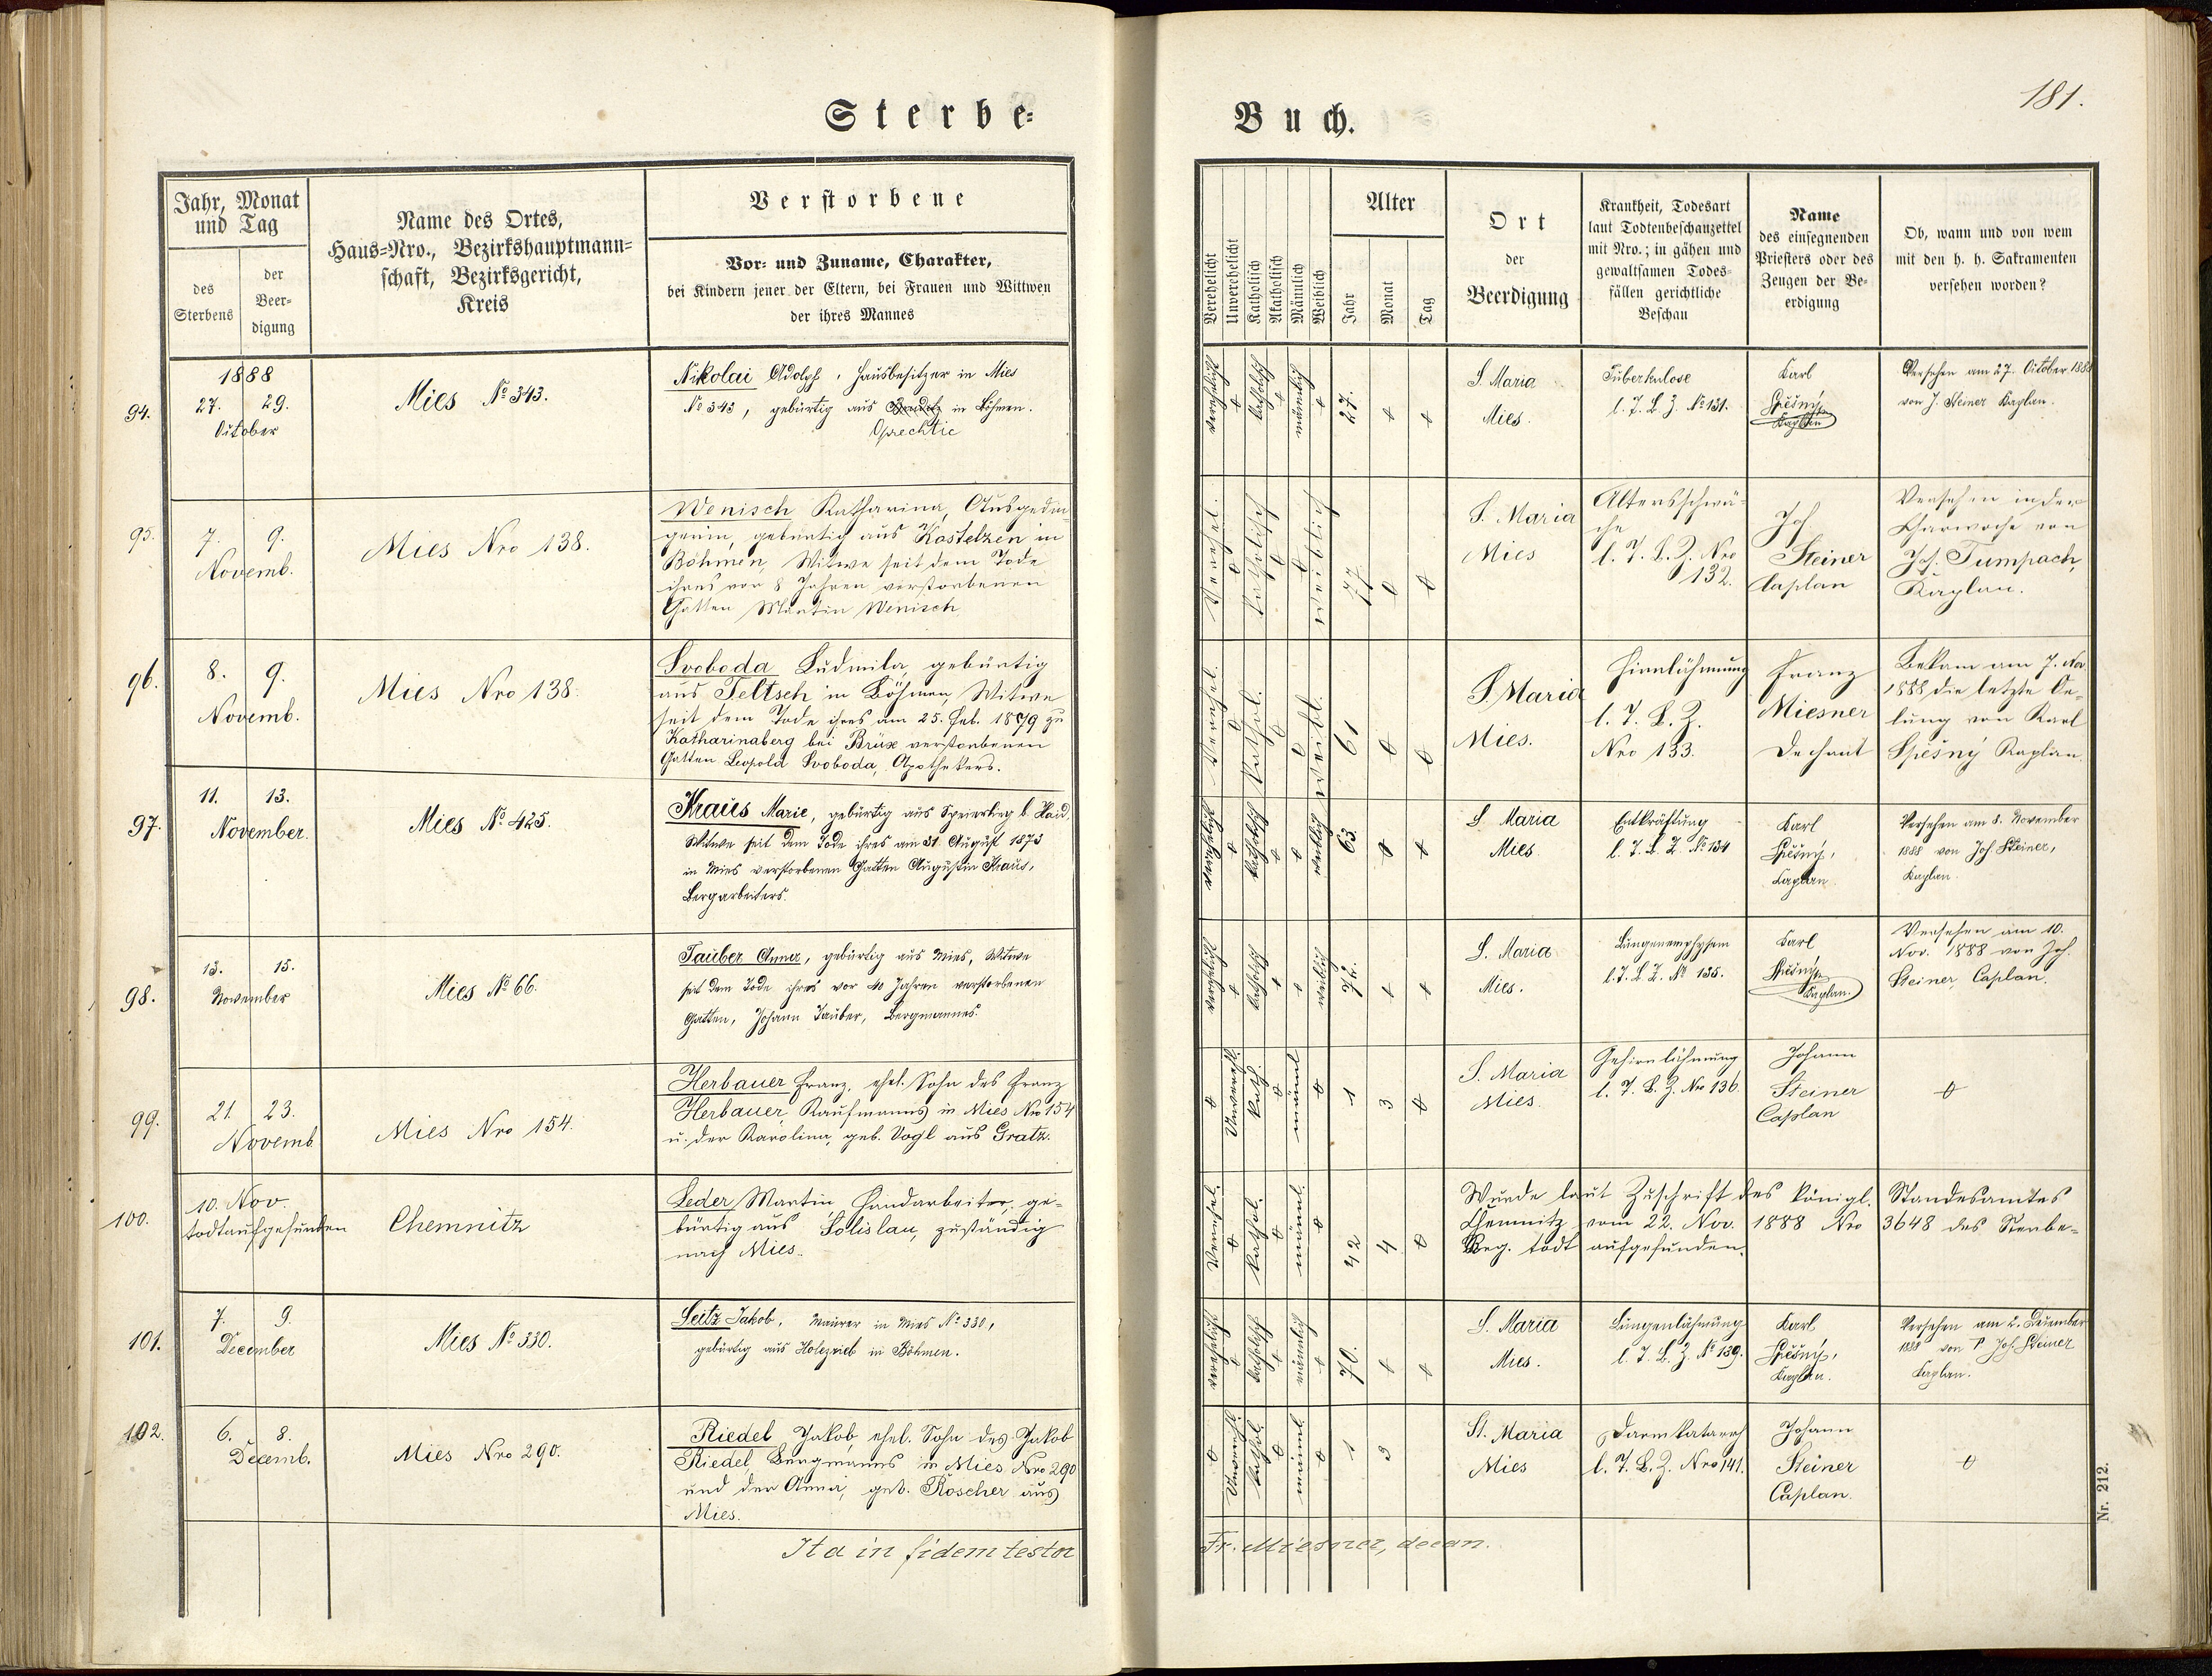 181.
Sterbe-
Buch.
Jahr, Monat
und Tag
des
Sterbens
der
Beer-
digung
Name des Ortes,
Haus-Nro., Bezirkshauptmann-
schaft, Bezirksgericht,
Kreis
Verstorbene
Vor- und Zuname, Charakter,
bei Kindern jener der Eltern, bei Frauen und Wittwen
der ihres Mannes
Verehelicht
Unverehelicht
Katholisch
Akatholisch
Männlich
Weiblich
Alter
Jahr
Monat
Tag
Ort
der
Beerdigung
Krankheit, Todesart
laut Todtenbeschauzettel
mit Nro.; in gähen und
gewaltsamen Todes-
fällen gerichtliche
Beschau
Name
des einsegnenden
Priesters oder des
Zeugen der Be-
erdigung
Ob, wann und von wem
mit den h. h. Sakramenten
versehen worden?
94.
1888
27. 29.
October
Mies No 343.
Nikolai Adolph, Hausbesitzer in Mies
No 343, gebürtig aus in Böhmen.
Oprechtic
verehelicht
katholisch
männlich
27.
S. Maria
Mies.
Tuberkulose
l. T. B. Z. No 131.
Karl
Spěšný,
Kaplan
Versehen am 27. October 1888
von J. Steiner Kaplan.
95.
7. 9.
Novemb.
Mies Nro 138.
Wenisch Katharina, Ausgedin-
gerin, gebürtig aus Kostelzen in
Böhmen, Witwe seit dem Tode
ihres vor 8 Jahren verstorbenen
Gatten Martin Wenisch.
Verehel.
katholisch
weiblich
77
S. Maria
Mies
Altersschwä-
che
l. T. B. Z. Nro
132.
Joh.
Steiner
Caplan
Versehen in der
Charwoche von
Joh. Tumpach,
Kaplan.
96.
8. 9.
Novemb.
Mies Nro 138.
Svoboda Ludmila, gebürtig
aus Teltsch in Böhmen, Witwe
seit dem Tode ihres am 25. Feb. 1879 zu
Katharinaberg bei Brüx verstorbenen
Gatten Leopold Svoboda, Apothekers.
Verehel.
kathol.
weibl.
61
S. Maria
Mies.
Hirnlähmung
l. T. B. Z.
Nro 133.
Franz
Miesner
Dechant
Bekam am 7. No
1888 die letzte Oe-
lung von Karl
Spěšný Kaplan.
97.
11. 13.
November.
Mies No 425.
Kraus Marie, gebürtig aus Speierling b. Haid,
Witwe seit dem Tode ihres am 31. August 1873
in Mies verstorbenen Gatten Augustin Kraus,
Bergarbeiters.
verehelicht
katholisch
weiblich
63.
S. Maria
Mies
Entkräftung
l. T. B. Z. No 134
Karl
Spěšný,
Kaplan
Versehen am 8. November
1888 von Joh. Steiner,
Kaplan.
98.
13. 15.
November
Mies No 66.
Tauber Anna, gebürtig aus Mies, Witwe
seit dem Tode ihres vor 40 Jahren verstorbenen
Gatten, Johann Tauber, Bergmannes.
verehelicht
katholisch
weiblich
72.
S. Maria
Mies.
Lungenemphysem
l. T. B. Z. No 135.
Karl
Spěšný,
Kaplan.
Versehen am 10.
Nov. 1888 von Joh.
Steiner, Caplan.
99.
21. 23.
Novemb
Mies Nro 154.
Herbauer Franz, ehel. Sohn des Franz
Herbauer Kaufmanns in Mies Nro 154
u. der Karolina, geb. Vogl aus Gratz.
Unverehl.
kath.
männl
1 3
S. Maria
Mies.
Gehirnlähmung
l. T. B. Z. Nro 136.
Johann
Steiner
Caplan
100.
10. Nov.
todtaufgefunden
Chemnitz
Leder Martin, Handarbeiter, ge-
bürtig aus Solislau, zuständig
nach Mies.
Verehel.
kathol.
männl.
42 4
Wurde laut Zuschrift des königl. Standesamtes
Chemnitz vom 22. Nov. 1888 Nro 3648 des Sterbe-
Reg. todt aufgefunden.
101.
7. 9.
December
Mies No 330.
Seitz Jakob, Maurer in Mies No 330,
gebürtig aus Holezrieb in Böhmen.
verehelicht
katholisch
männlich
70.
S. Maria
Mies.
Lungenlähmung
l. T. B. Z. No 139.
Karl
Spěšný,
Kaplan.
Versehen am 2. December
1888 von P. Joh. Steiner
Kaplan.
102.
6. 8.
Decemb.
Mies Nro 290.
Riedel Jakob, ehel. Sohn des Jakob
Riedel Bergmanns in Mies Nro 290
und der Anna, geb. Roscher aus
Mies.
Unverehl.
kathol.
männl.
1 3
St. Maria
Mies
Darmkatarrh
l. T. B. Z. Nro 141.
Johann
Steiner
Caplan.
Ita in fidem testor
Fr. Miesner, decan.
Nr. 212.